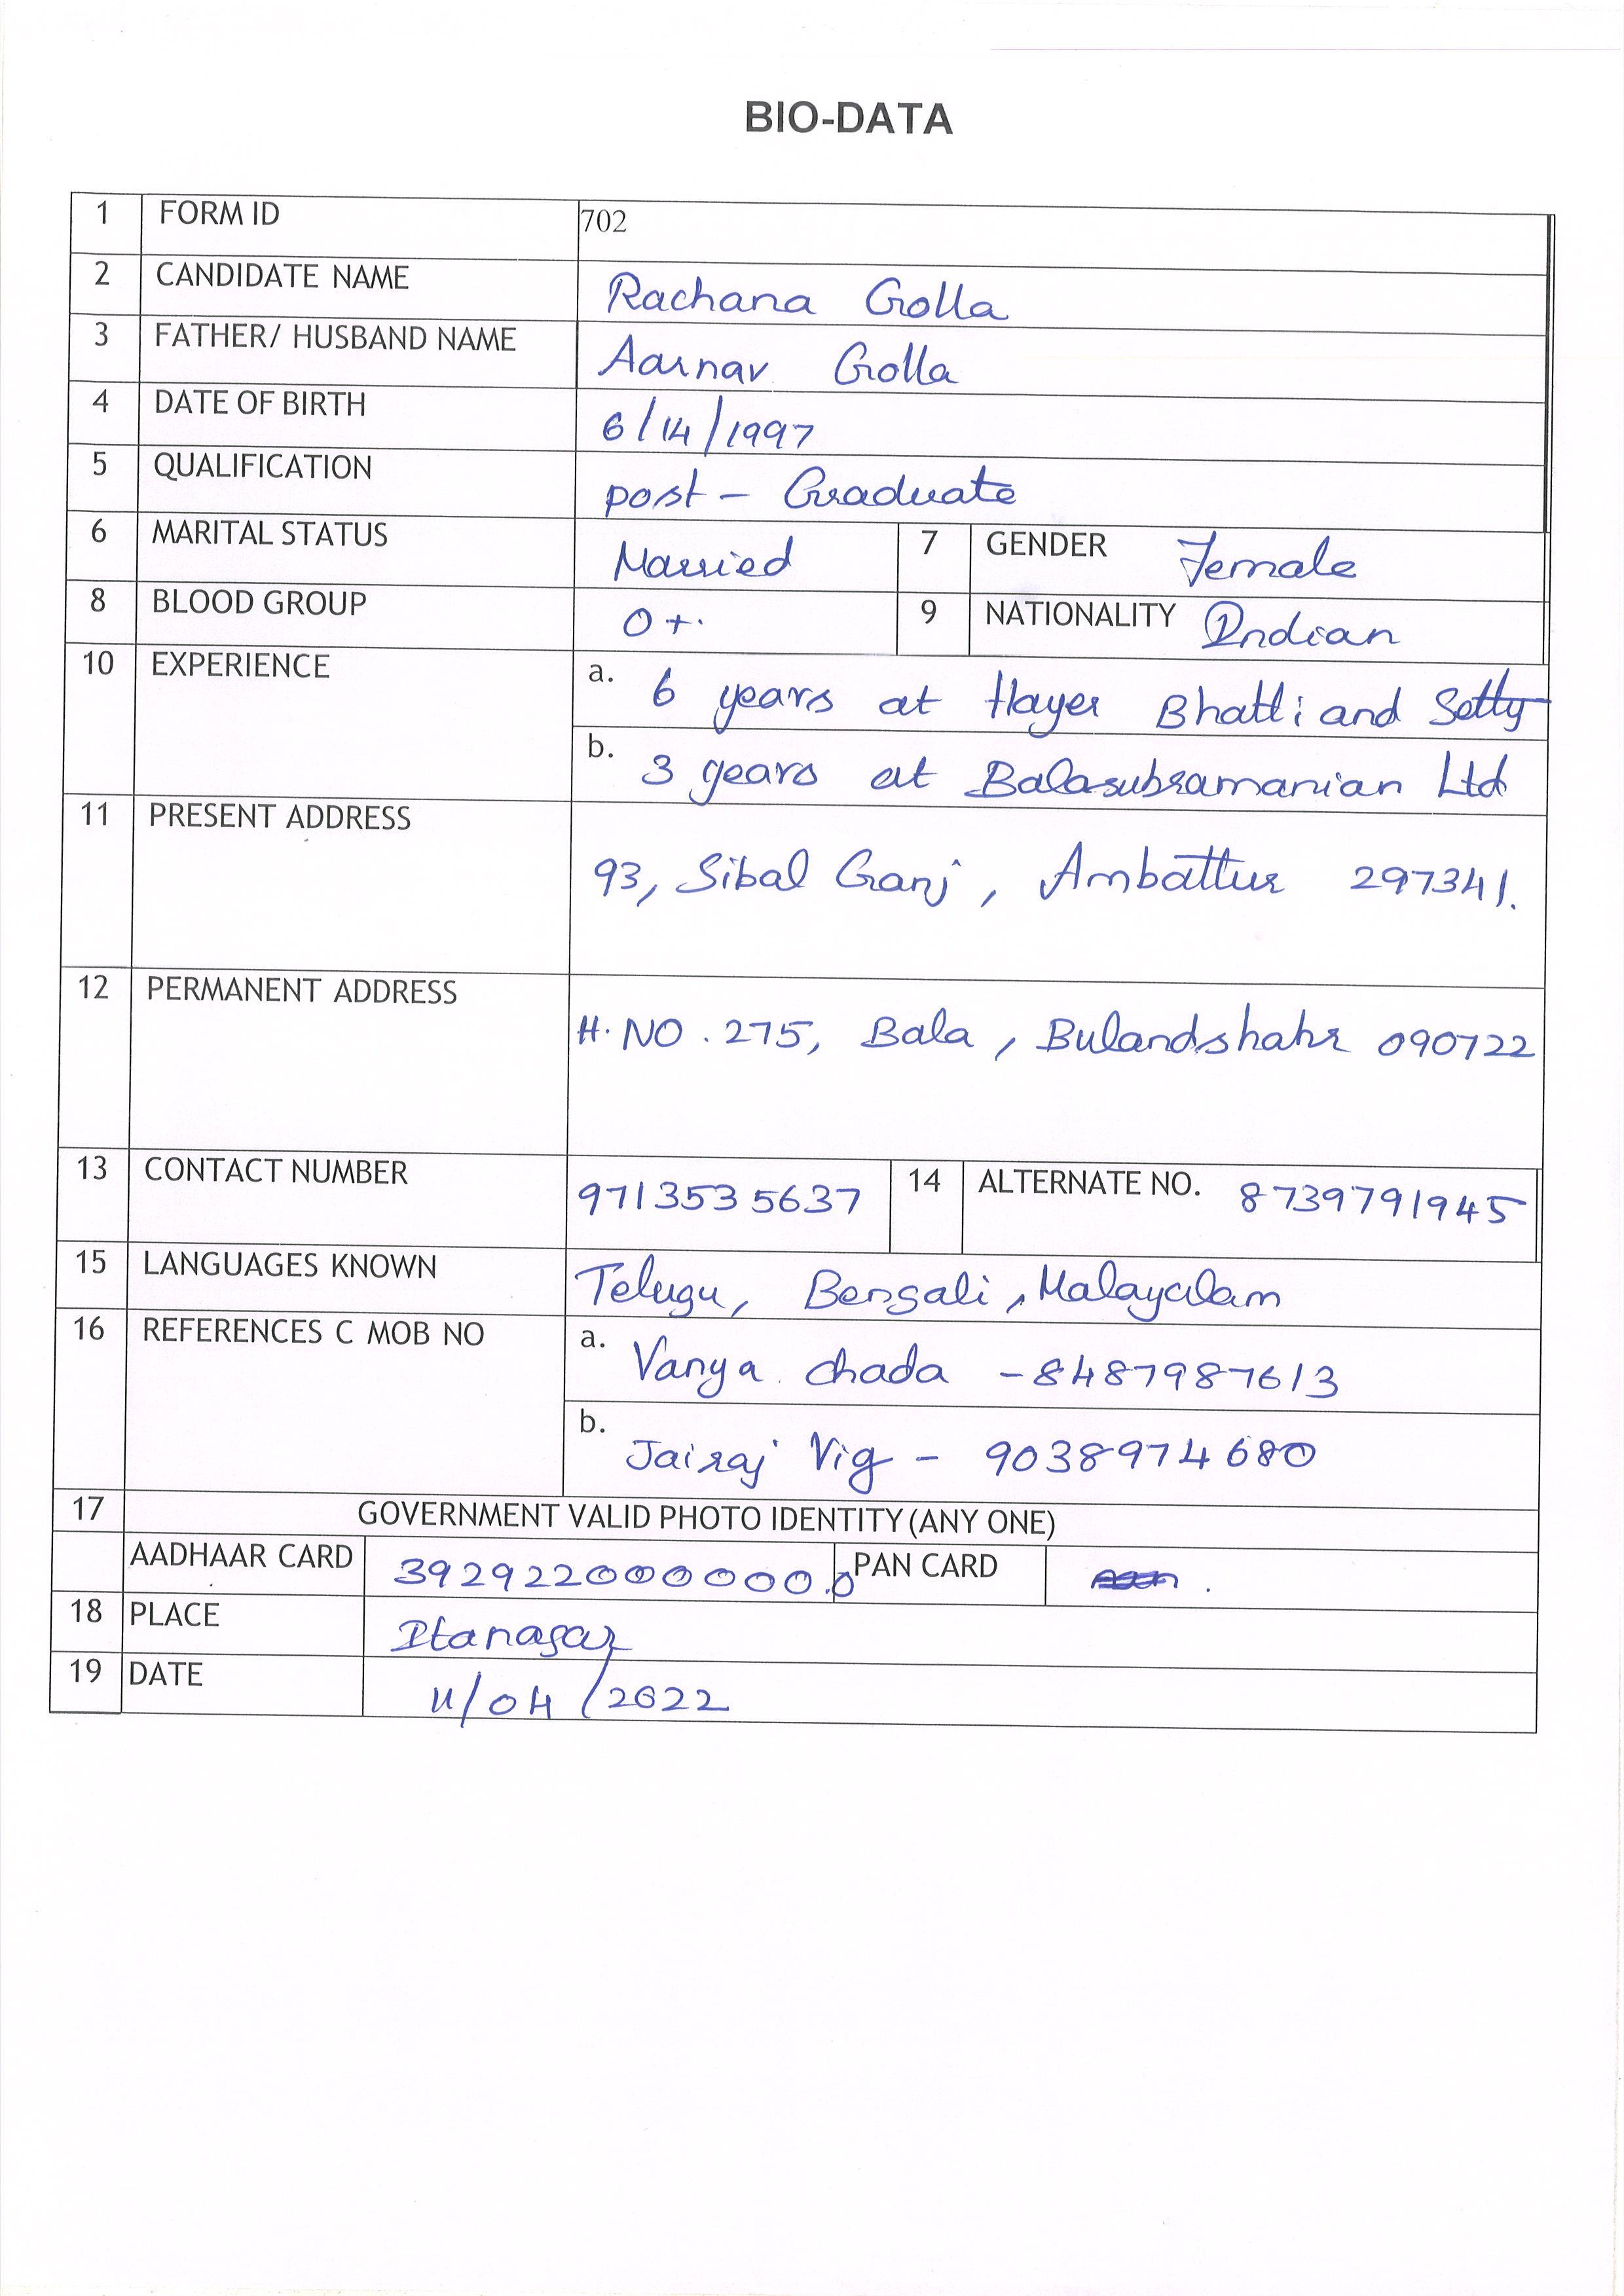 BIO-DATA
1 FORM ID 702
2 CANDIDATE NAME Rachana Golla
3 FATHER/ HUSBAND NAME Aarnav Golla
4 DATE OF BIRTH 6/14/1997
5 QUALIFICATION post - Graduate
6 MARITAL STATUS Married 7 GENDER Female
8 BLOOD GROUP O+. 9 NATIONALITY Indian
10 EXPERIENCE a. 6 years at Hayer Bhatti and Setty
b. 3 years at Balasubramanian Ltd
11 PRESENT ADDRESS
93, Sibal Ganj, Ambattur 297341.
12 PERMANENT ADDRESS
H.NO. 275, Bala, Bulandshahr 090722
13 CONTACT NUMBER 9713535637 14 ALTERNATE NO. 8739791945
15 LANGUAGES KNOWN Telugu, Bengali, Malayalam
16 REFERENCES C MOB NO a. Vanya chada - 8487987613
b. Jairaj Vig - 9038974680
17 GOVERNMENT VALID PHOTO IDENTITY (ANY ONE)
AADHAAR CARD 392922000000.0 PAN CARD
18 PLACE Itanagar
19 DATE 11/04/2022